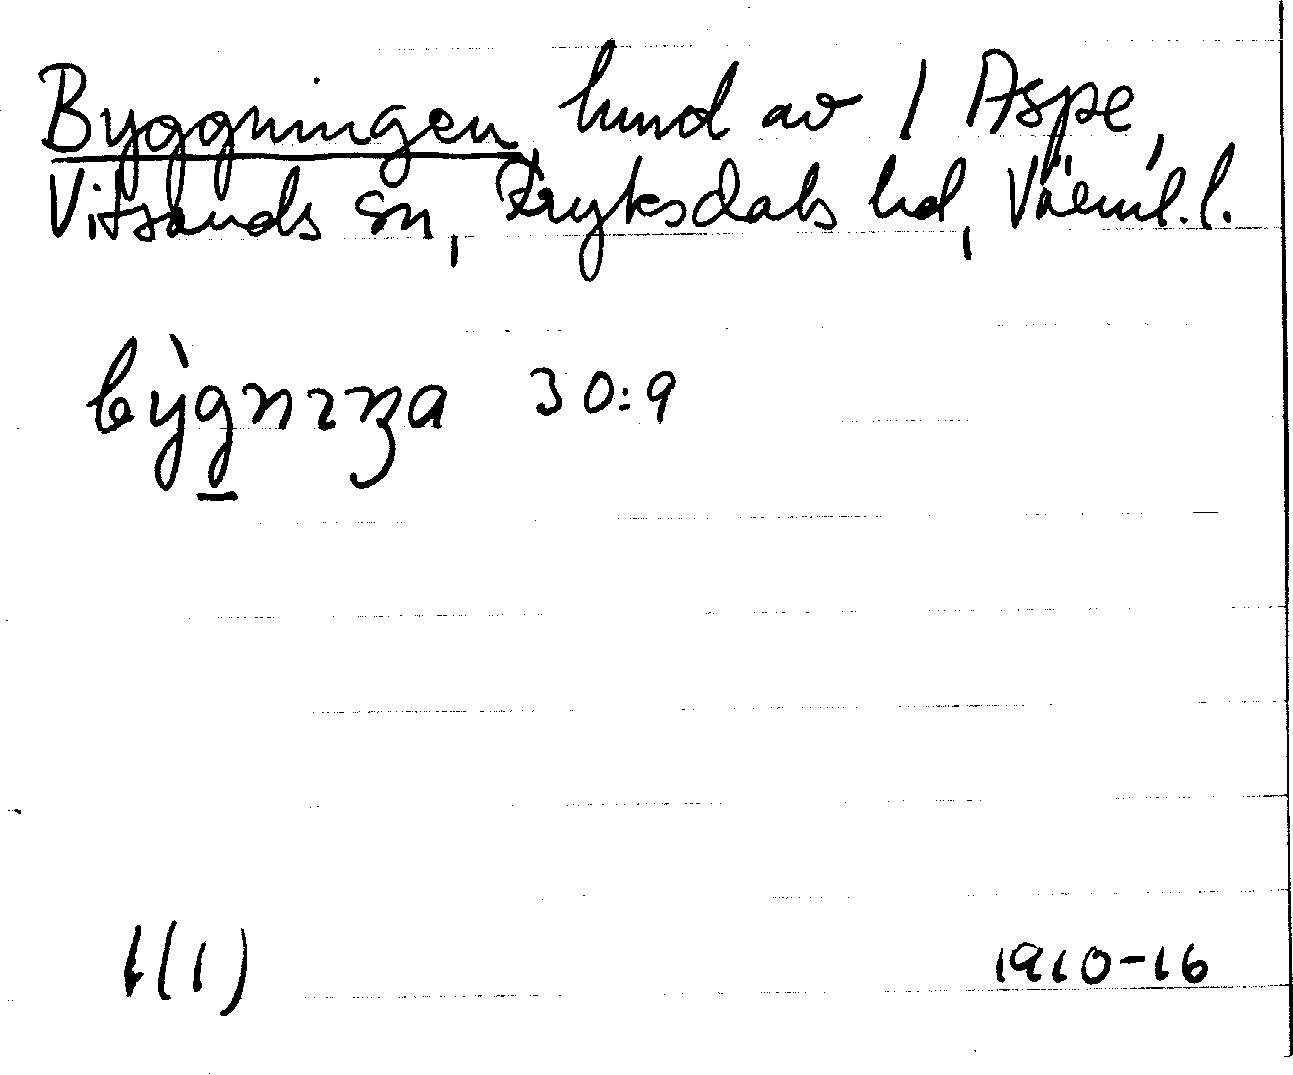 Byggningen, hmd av 1 Aspe,
Vitsands sn, Fryksdals hd, Värml. l.
bỳgnɪŋa 30:9
1(1)
1910-16